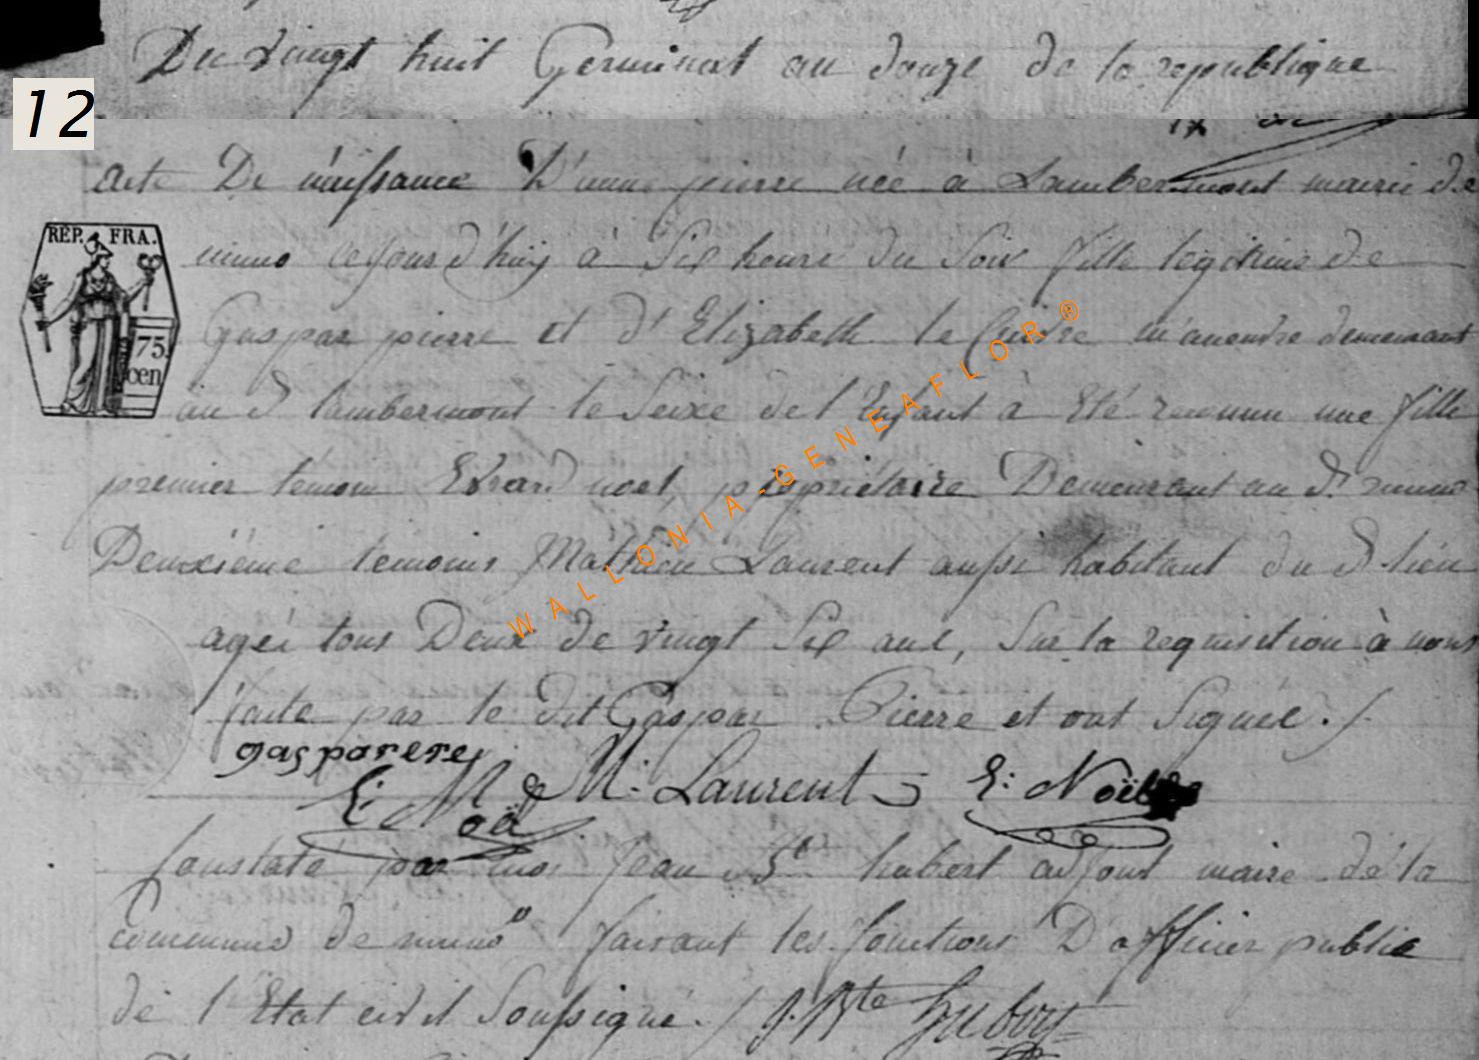 Du vingt huit Germinal an douze de la republique
12
acte De naissance D'anne pierre née à Lambermont mairie de
muno cejourd'huy à Six heure du Soir fille legitime de
REP. FRA.
75
cen
Gaspar pierre et d'Elizabeth le m'anendre demeurant
au d lambermont le Seixe de l'Enfant à Eté reconnu une fille
premier temoin Evrard noel, propriétaire Demeurant au dt muno
Deuxiéme temoins Mathieu Laurent aussi habitant du d lieu
agés tous Deux de vingt Six ans, Sur la requisition à nous
faite par le dit Gaspar Pierre et ont Signée./.
gas parere
E: Noël M: Laurent E: Noël
Constaté par moi Jean Bte hubert adjoint maire de la
Commune de muno faisant les fonctions D'officier public
de l'Etat civil Soussigné./ J: Bte Hubert
WALLONIA-GENEAFLOR®